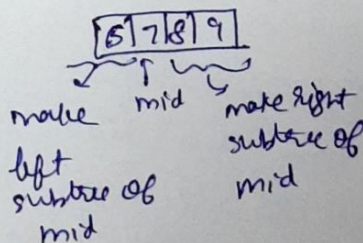 6 7 8 9
make left subtree of mid
mid
make right subtree of mid